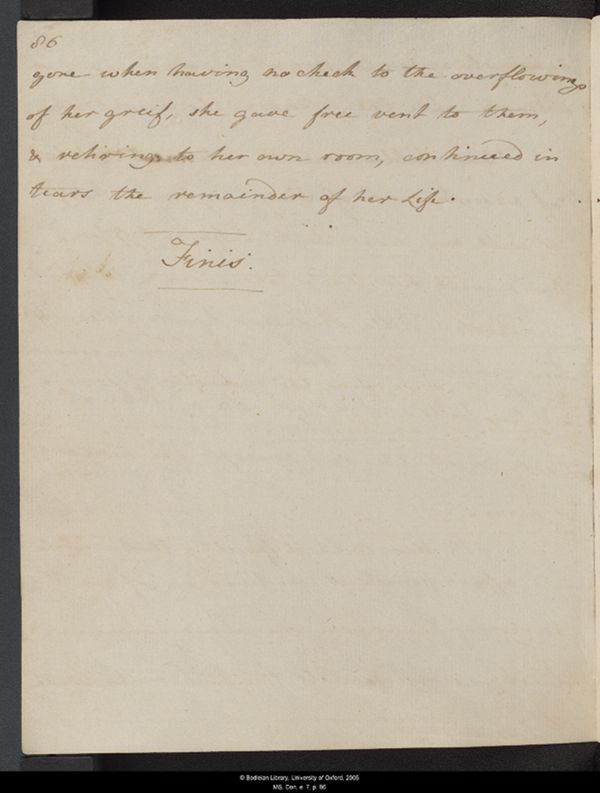 86
gone when having no check to the overflowings
of her greif, she gave free vent to them,
& retiring to her own room, continued in
tears the remainder of her Life.
Finis.
© Bodleian Library, University of Oxford, 2006
MS. Don. e. 7, p. 86